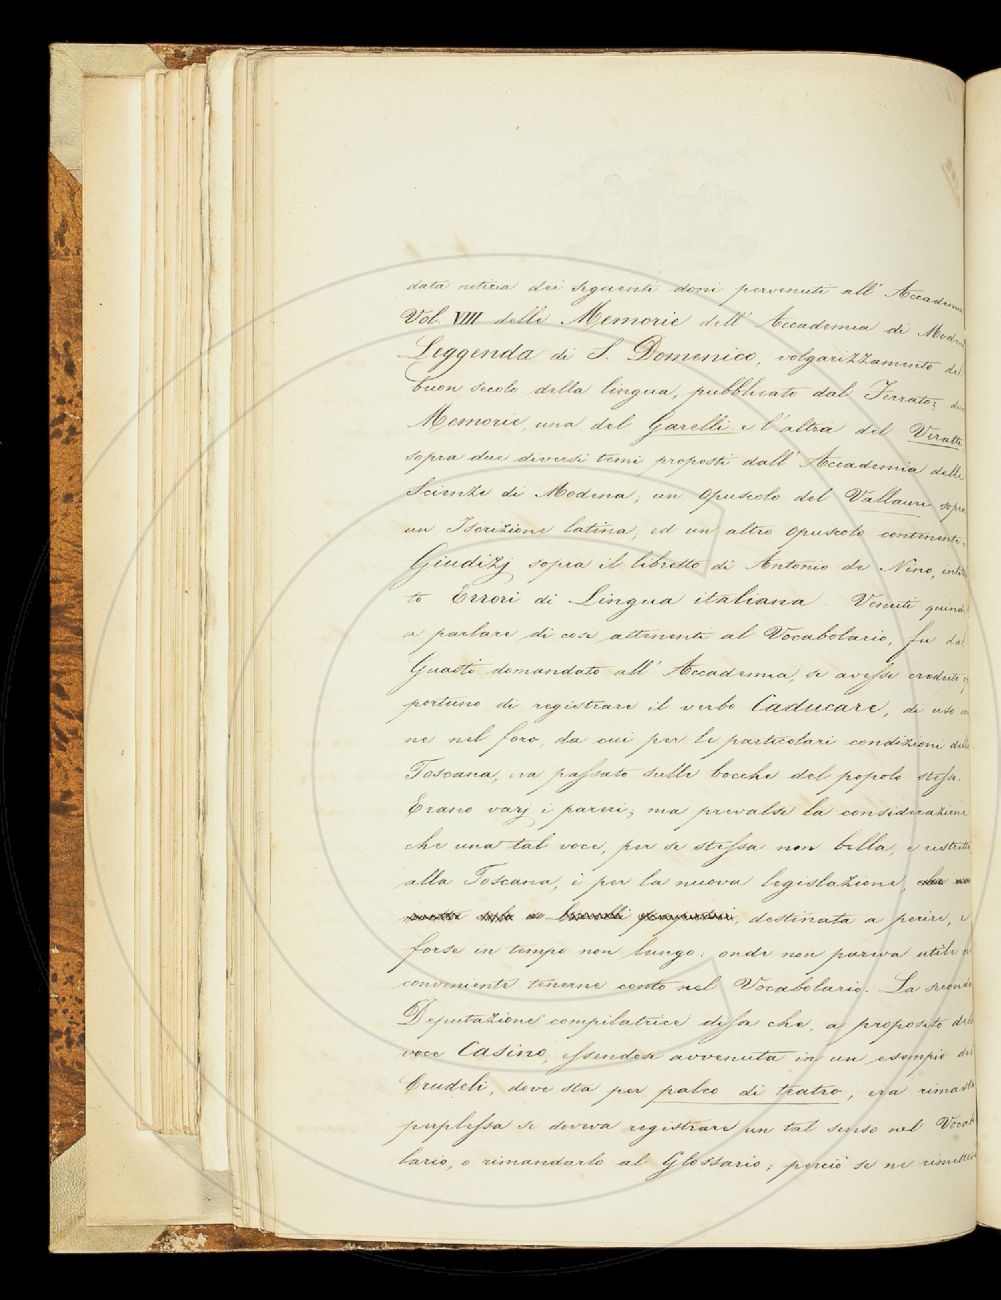 data notizia dei seguenti doni pervenuti all' Accademia
Vol. VIII delle Memorie dell' Accademia di Modena
Leggenda di S. Domenico, volgarizzamento del
buon secolo della lingua, pubblicato dal Ferrato; due
Memorie, una del Garelli e l'altra del Veratti
sopra due diversi temi proposti dall' Accademia delle
Scienze di Modena; un opuscolo del Vallauri sopra
un Iscrizione latina, ed un altro opuscolo contenente
Giudizj sopra il libretto di Antonio de Nino, intito
to Errori di Lingua italiana. Venuti quindi
a parlare di cose attinenti al Vocabolario, fu dal
Guasti domandato all' Accademia, se avesse creduto op
portuno di registrare il verbo Caducare, di uso co
ne nel foro, da cui per le particolari condizioni della
Toscana, era passato sulle bocche del popolo stesso.
Erano varj i pareri; ma prevalse la considerazione
che una tal voce, per se stessa non bella, e ristretta
alla Toscana, è per la nuova legislazione,
destinata a perire, e
forse in tempo non lungo: onde non pareva utile nè
conveniente tenerne conto nel Vocabolario. La seconda
Deputazione compilatrice disse che, a proposito della
voce Casino, essendosi avvenuta in un esempio del
Crudeli, dove sta per palco di teatro, era rimasta
perplessa se doveva registrare un tal senso nel Vocab
lario, o rimandarlo al Glossario; perciò se ne rimetteva